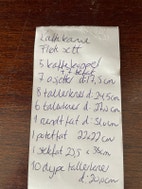 Kaffekanne
Fløtesett
5 kaffekopper
+ 7 skåler
7 asjetter d: 17,5 cm
8 tallerkener d: 24,5cm
6 tallerkener d: 21,0 cm
1 rundt fat d: 31,0 cm
1 potetfat 22x22 cm
1 stekfat 23,5 x 35cm
10 dype tallerkener
d: 24,0cm